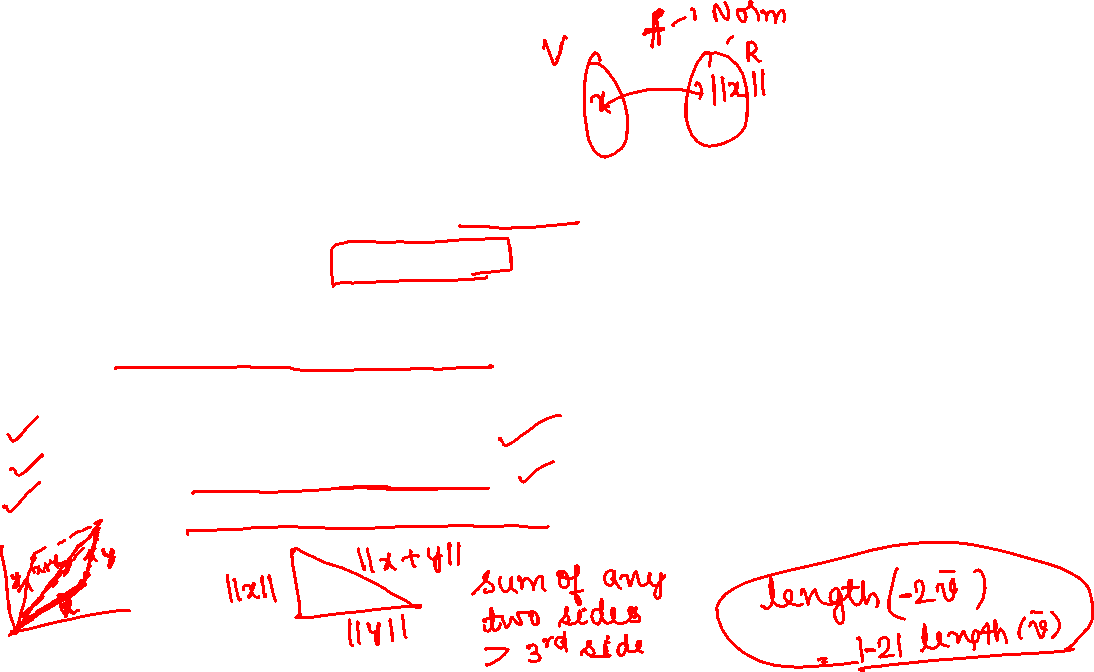 f → Norm
V
R
x
||x||
y
||x||
||x + y||
||y||
sum of any
two sides
> 3rd side
length (-2v̄)
= |-2| length (v̄)